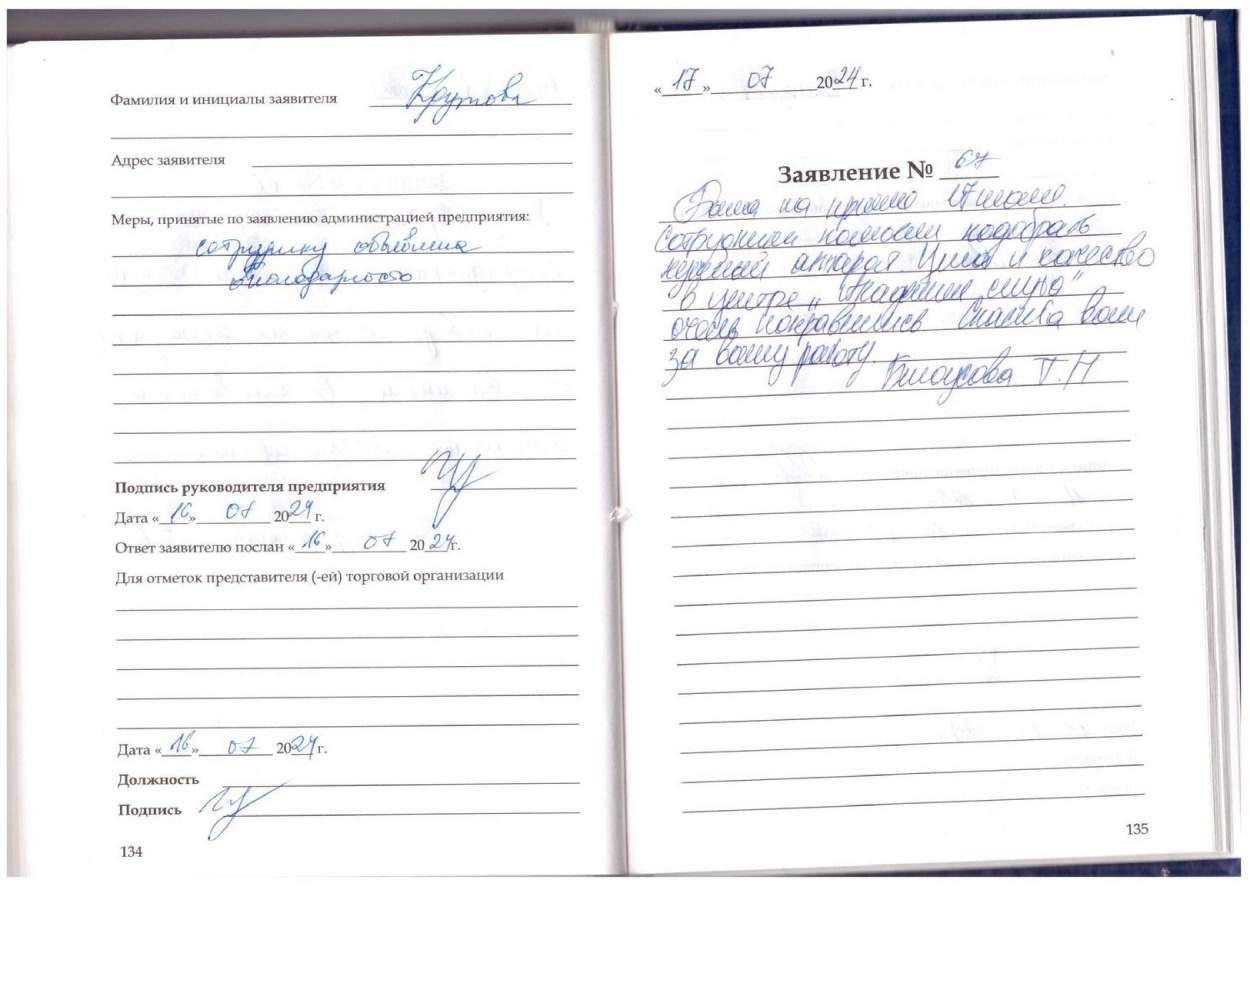 Фамилия и инициалы заявителя Крутова
Адрес заявителя
Меры, принятые по заявлению администрацией предприятия:
сотруднику объявлена
благодарность
Подпись руководителя предприятия
Дата «16» 07 2024 г.
Ответ заявителю послан «16» 07 2024г.
Для отметок представителя (-ей) торговой организации
Дата «16» 07 2024г.
Должность
Подпись
134
«17» 07 2024 г.
Заявление № 67
Была на приёме 17 июля.
Сотрудники помогли подобрать
аппарат. Цена и качество
в центре „Академия слуха"
очень понравились Спасибо вам
за вашу работу.
Белоусова Т.Н
135